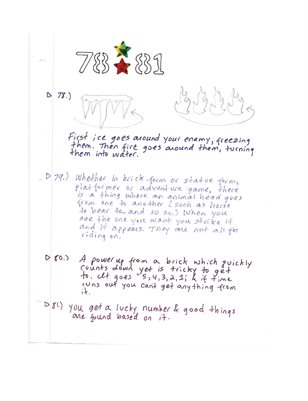 78 ★ 81
▷ 78.)
First ice goes around your enemy, freezing
them. Then fire goes around them, turning
them into water.
▷ 79.) Whether in brick form or statue form,
platformer or adventure game, there
is a thing where an animal head goes
from one to another (such as horse
to bear to, and so on.) When you
see the one you want you strike it
and it appears. They are not all for
riding on.
▷ 80.) A power up from a brick which quickly
counts down yet is tricky to get
to. It goes "5,4,3,2,1, & if time
runs out you cant get anything from
it.
▷ 81.) you get a lucky number & good things
are found based on it.